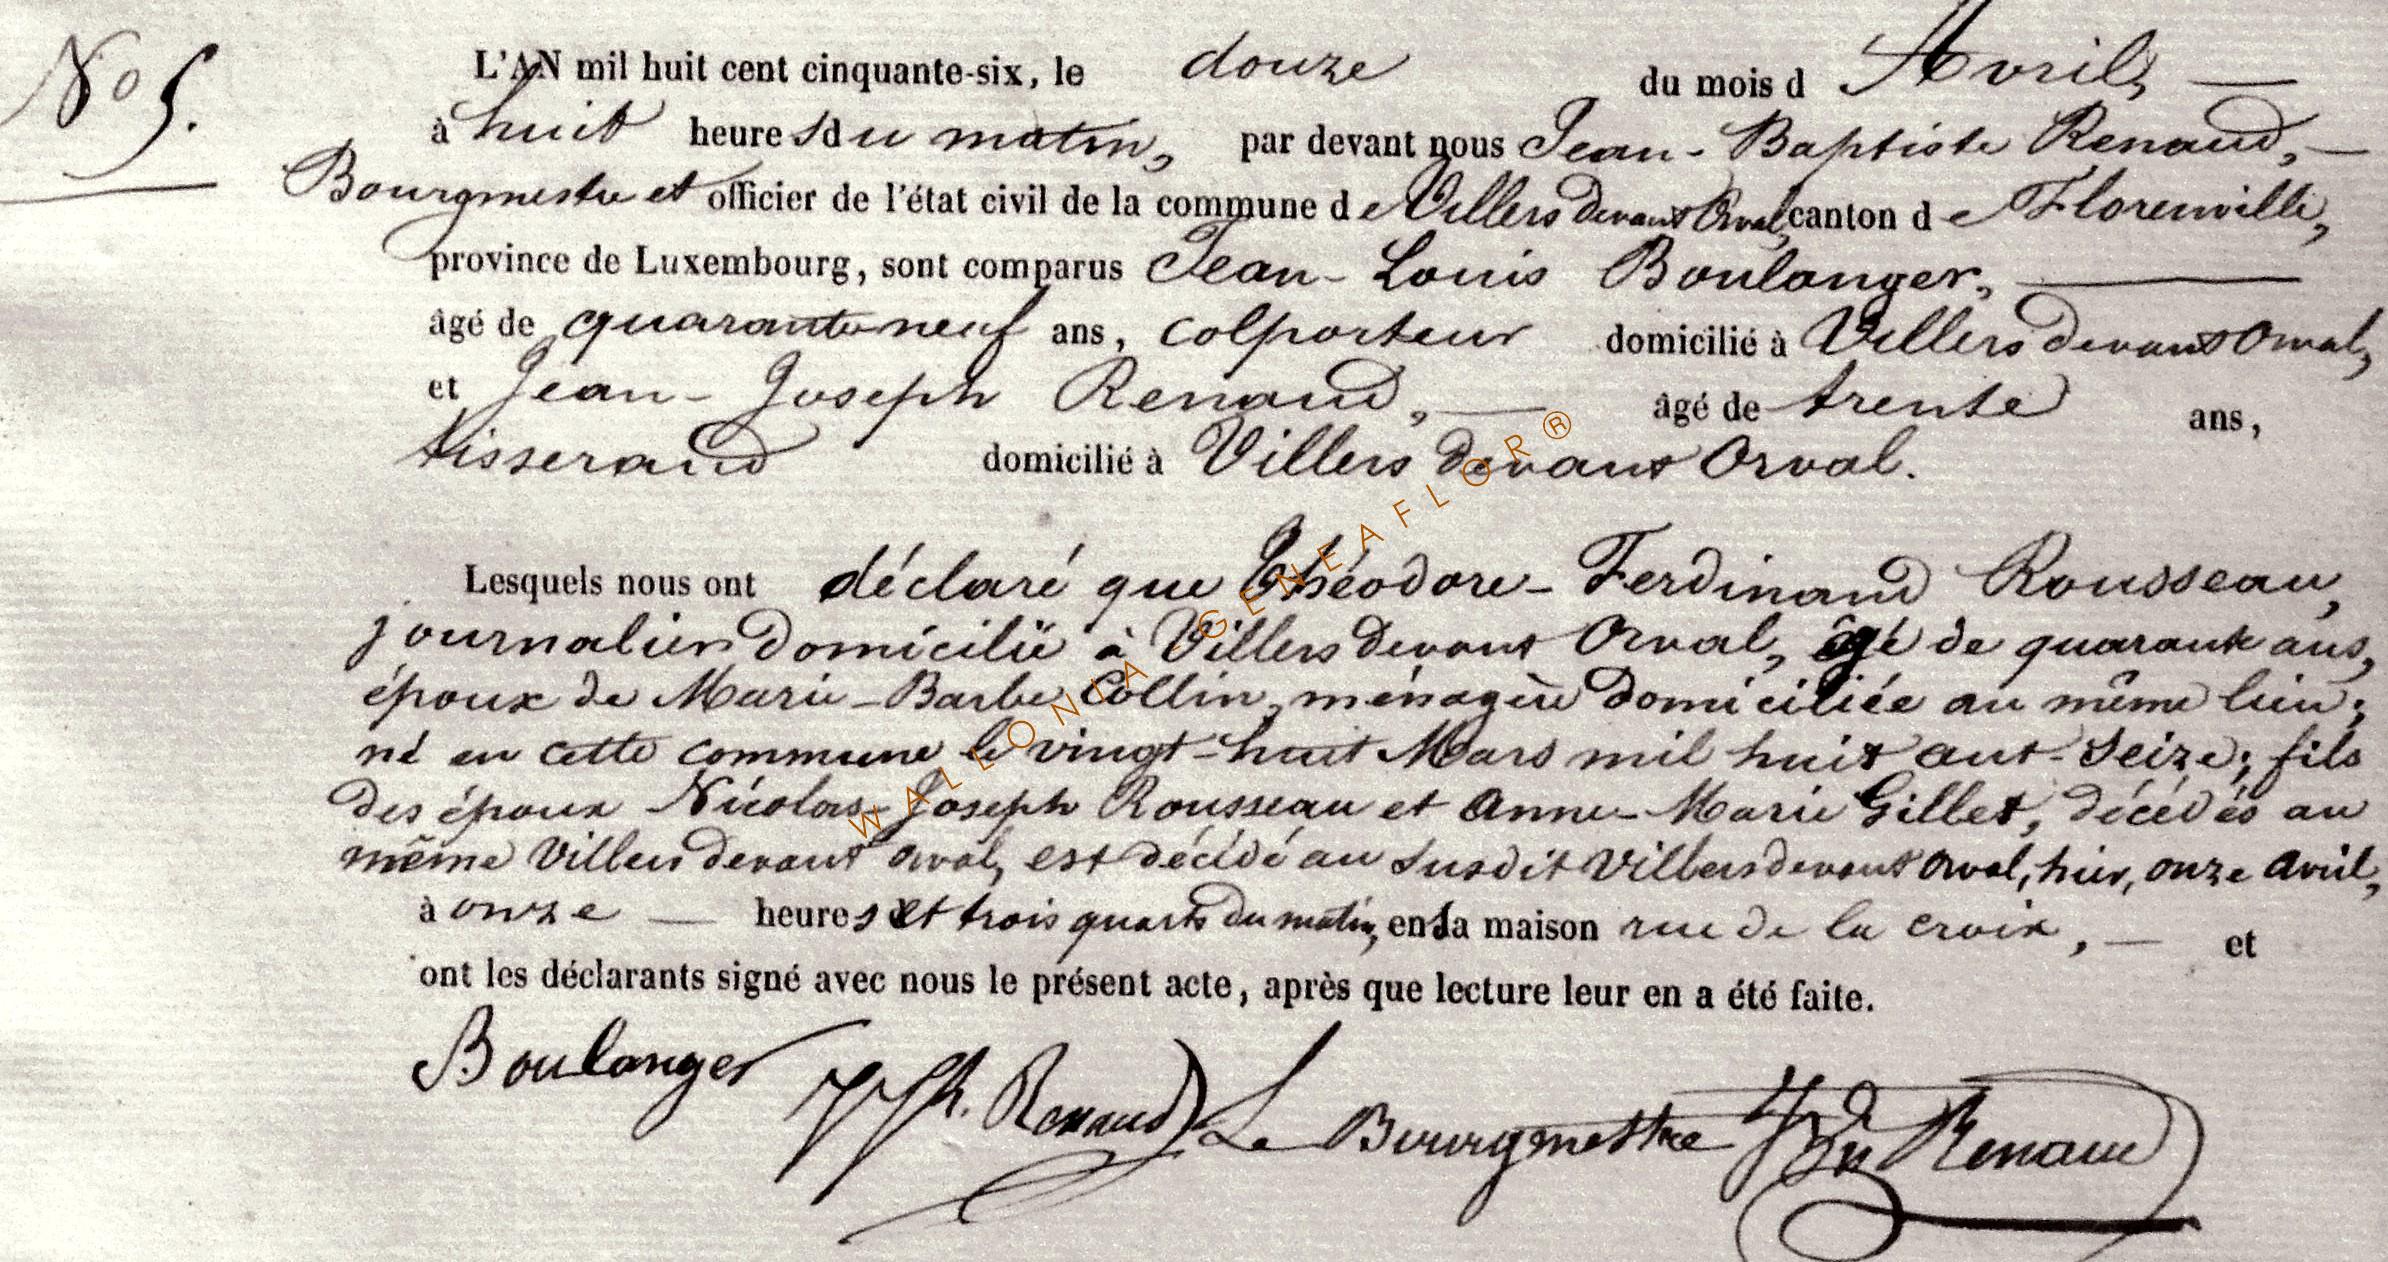 No 5.
L'AN mil huit cent cinquante-six, le douze du mois d Avril, —
à huit heures du matin, par devant nous Jean-Baptiste Renaud, —
Bourgmestre et officier de l'état civil de la commune de Villers devant Orval, canton de Florenville,
province de Luxembourg, sont comparus Jean-Louis Boulanger, —
âgé de quarante neuf ans, colporteur domicilié à Villers devant Orval,
et Jean-Joseph Renaud, — âgé de trente ans,
tisserand domicilié à Villers devant Orval.
Lesquels nous ont déclaré que Théodore-Ferdinand Rousseau,
journalier domicilié à Villers devant Orval, âgé de quarante ans,
époux de Marie-Barbe Collin, ménagère domiciliée au même lieu;
né en cette commune le vingt-huit Mars mil huit cent-seize; fils
des époux Nicolas-Joseph Rousseau et Anne-Marie Gillet, décédés au
même Villers devant Orval, est décédé au susdit Villers devant Orval, hier, onze Avril,
à onze — heures et trois quarts du matin, en sa maison rue de la croix, — et
ont les déclarants signé avec nous le présent acte, après que lecture leur en a été faite.
Boulanger JJph. Renaud Le Bourgmestre Renaud
WALLONIA GENEAFLOR®